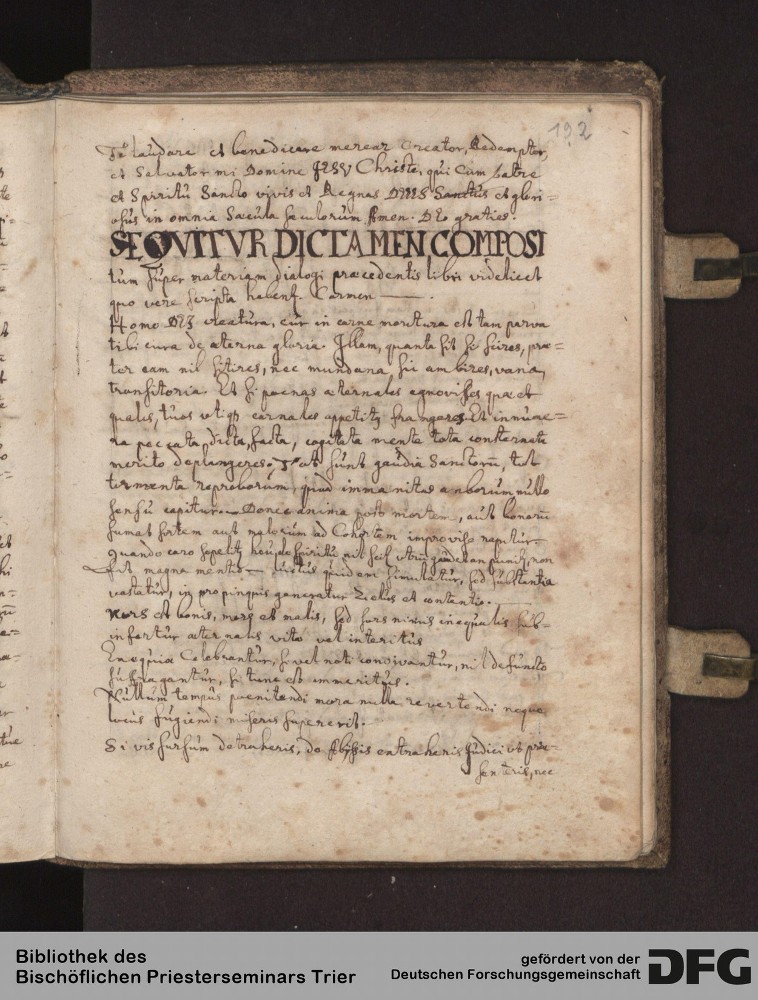 192
Te laudare et benedicere merear Creator, Redemptor,
et Salvator mi Domine JESV Christe, qui cum patre
et Spiritu Sancto vivis et Regnas DEUS Sanctus et glori-
osus in omnia Saecula saeculorum Amen. Deo gratias
SEQVITVR DICTAMEN COMPOSI
tum super materiam dialogi praecedentis libri videlicet
quo vere scripta habent. Carmen
Homo creatura, cur in carne moritura est tam parva
tibi cura de aeterna gloria. Illam, quanta sit si scires, prae-
ter eam nil sitires, nec mundana, sic ambires, vana,
transitoria. Et si poenas aeternales agnovisses quae et
quales, tuos utiq carnales appetitq frangeres. Et innume-
ra peccata, dicta, facta, cogitata mente tota consternata
merito deplangeres. Tot sunt gaudia Sanctorū, tot
tormenta reproborum, quod immanitas amborum nullo
sensu capitur. Donec anima post mortem, aut bonorū
sumat sortem aut malorum ad Cohortem improviso rapitur.
quando caro sepelitq de spiritu nil
fit magna mentio luctus quidem simulatur, sed substantia
vastatur, in propinquis generatur Zelus et contentio.
Mors est bonis, mors et malis, sed sors nimis inequalis sub-
infertur aeternalis vita vel interitus
Exequiae Celebrantur, convivantur, nil defuncto
suffragantur, si tunc est immeritus.
Nullum tempus poenitendi mora nulla revertendi neque
locus fugiendi miseris supererit.
Si vis sursum detraheris, de Abyssis extraheris Judici ut prae-
senteris, nec
Bibliothek des
Bischöflichen Priesterseminars Trier
gefördert von der
Deutschen Forschungsgemeinschaft
DFG